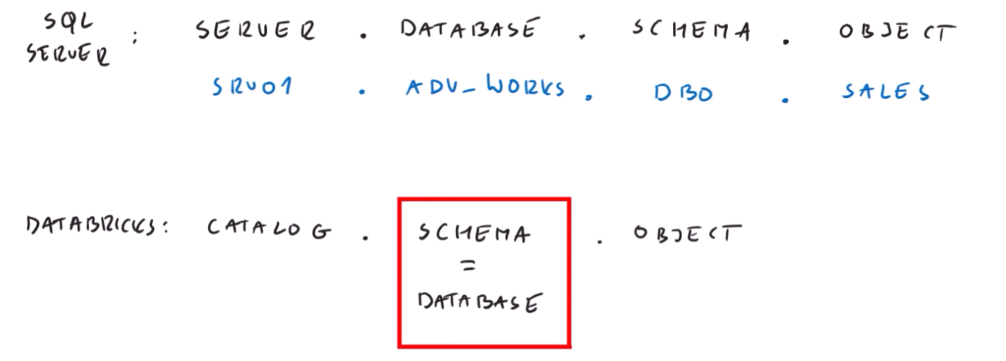 SQL SERVER : SERVER . DATABASE . SCHEMA . OBJECT
SRV01 . ADV_WORKS . DBO . SALES
DATABRICKS: CATALOG . SCHEMA . OBJECT
=
DATABASE